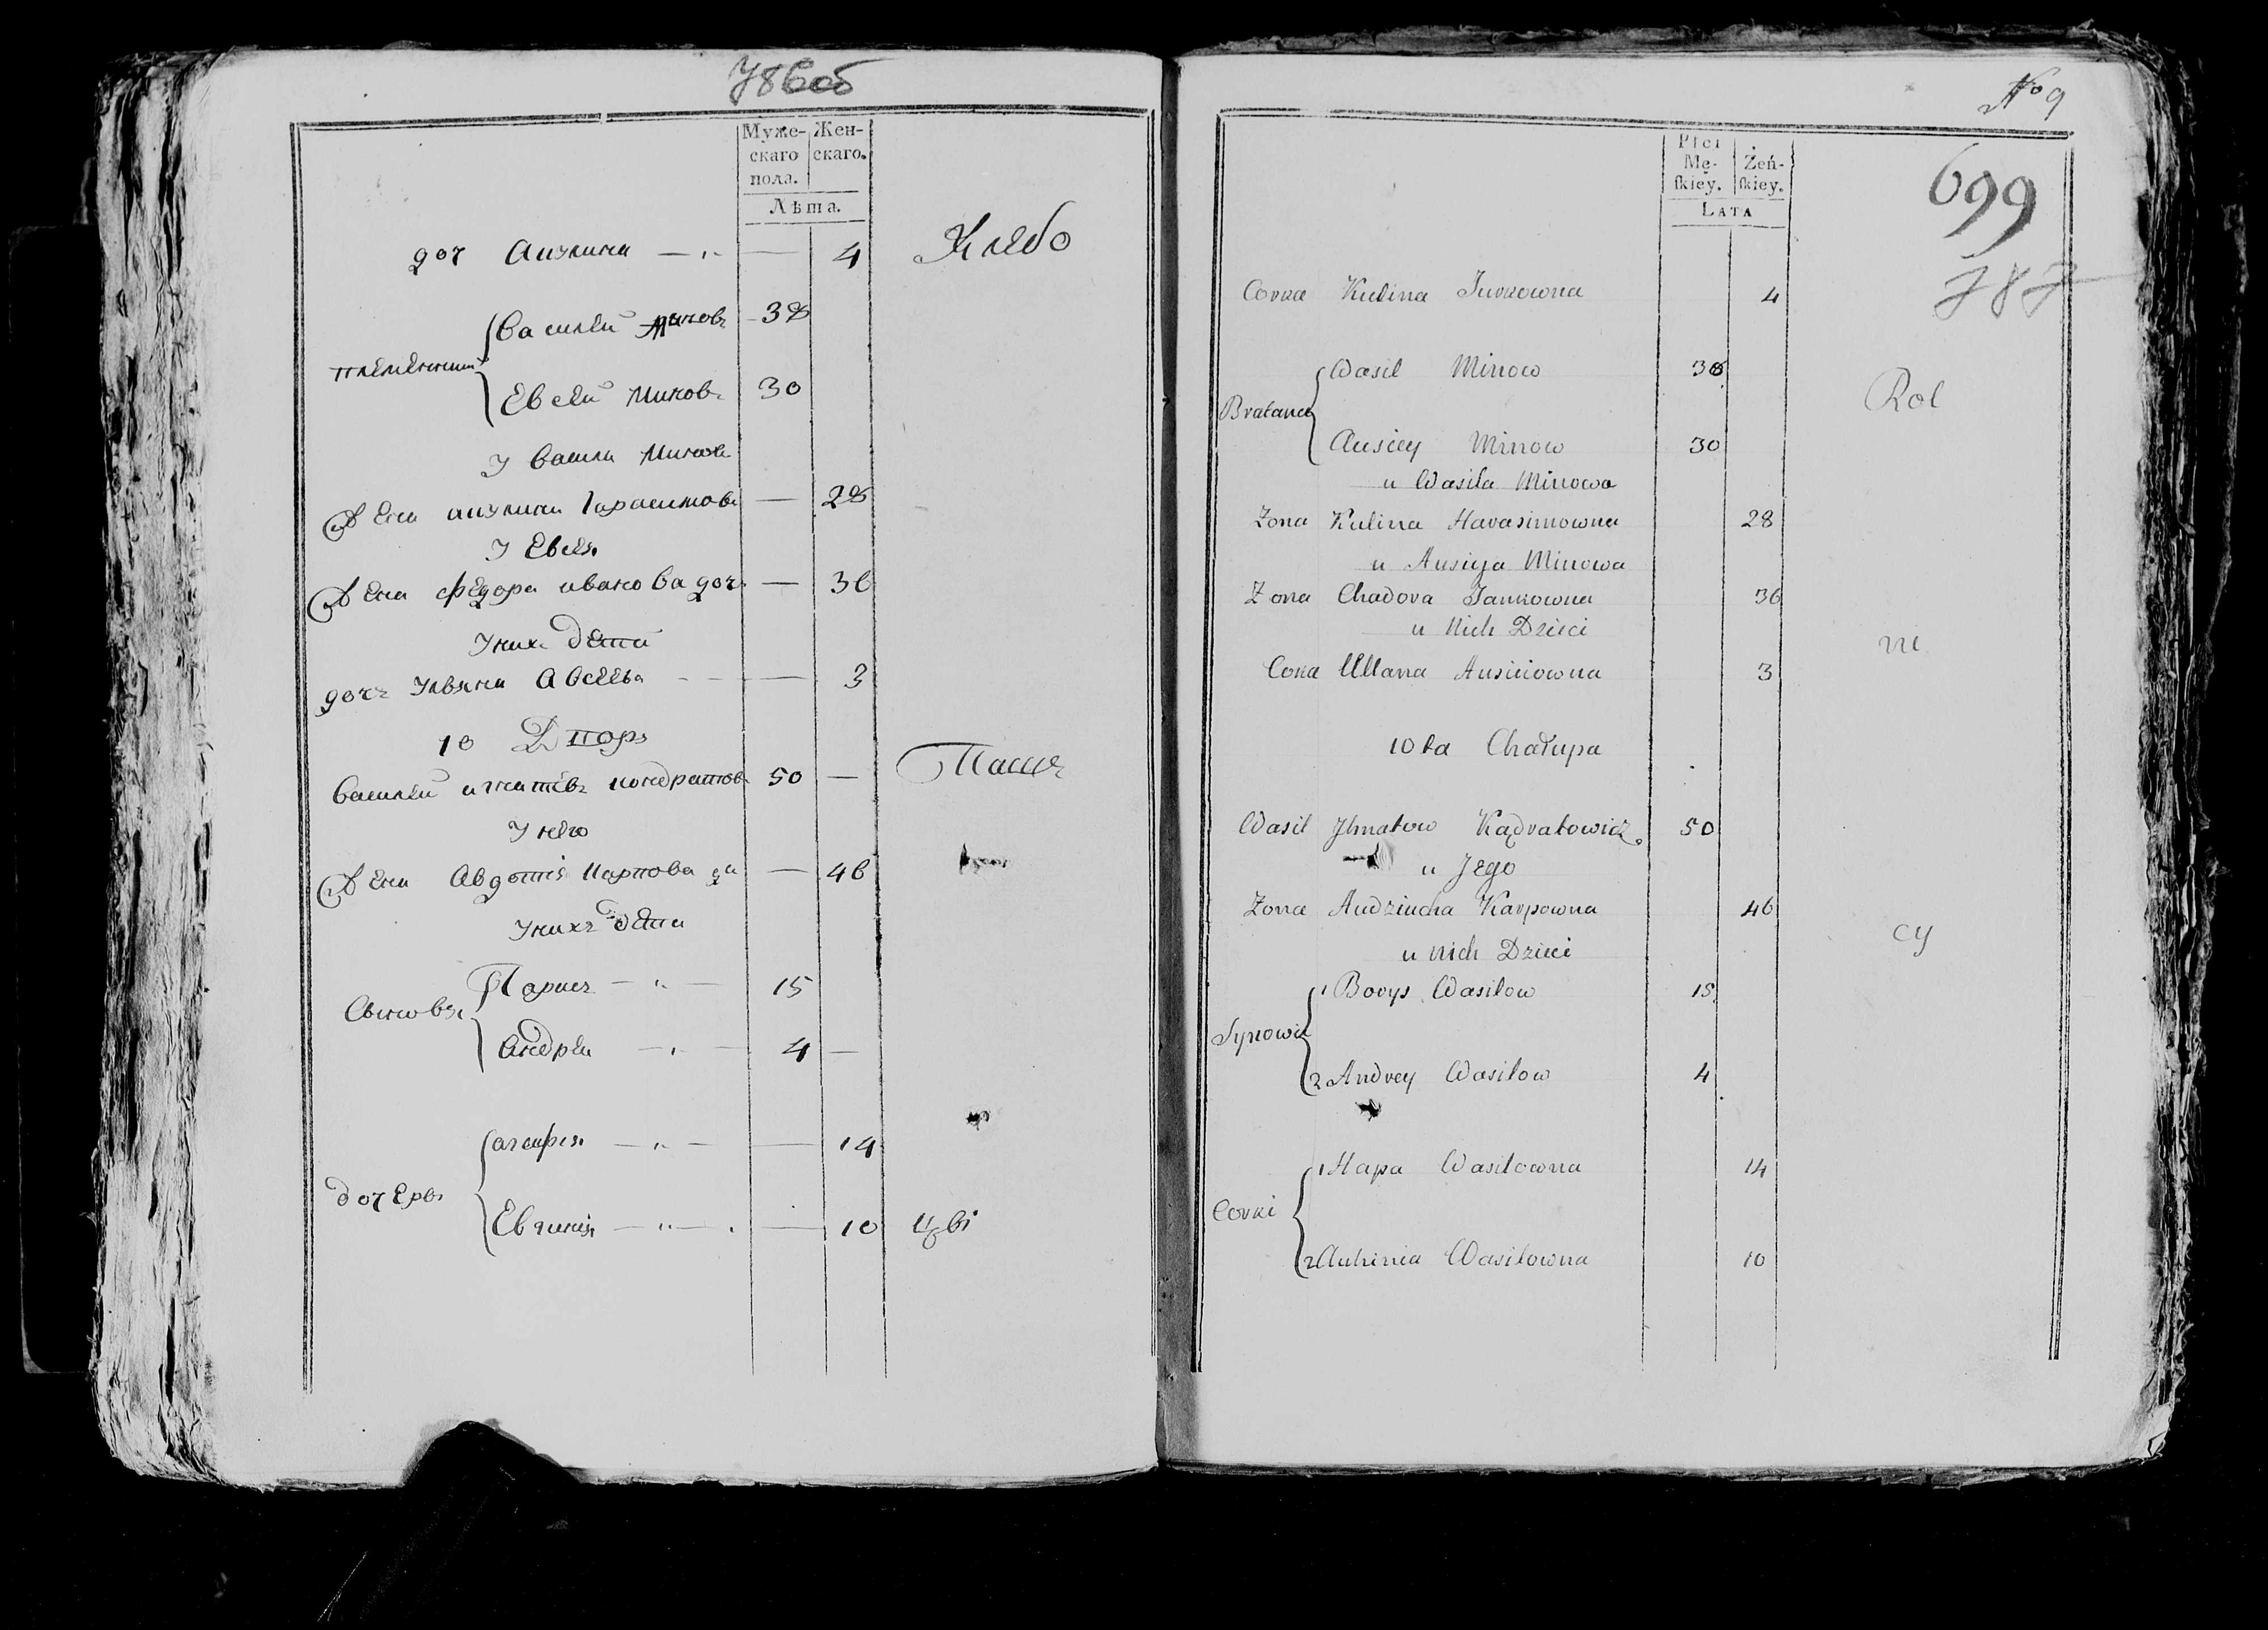 786об
Муже-
скаго
пола.
Жен-
скаго.
Лѣта.
доч Акулина — „ — 4
Хлебо
племянники
Василей Миновъ 38
Евсей Миновъ 30
У Васила Минова
Жена акулина Гарасимова — 28
У Евсея
Жена федора иванова доч — 36
У них дети
дочь Ульяна Авсеева — 3
10 Двор
Василей игнатевъ кондратовъ 50 —
Пашц
У него
Жена Авдотия Карпова да — 46
У нихъ дети
Сыновья
Борисъ — „ — 15
Андрей — „ — 4 —
дочерьи
агафия — „ — 14
Евгиния — „ — 10
цві
№ 9
699
787
Płci
Mę-
skiey.
Żeń-
skiey.
LATA
Corka Kulina Jurkowna 4
Bratance
Wasil Minow 38
Ausiey Minow 30
Rol
u Wasila Minowa
Zona Kulina Harasimowna 28
u Ausieja Minowa
Zona Chadora Jankowna 36
u Nich Dzieci
ni
Corka Ullana Ausiiowna 3
10ta Chałupa
Wasil Jhnatow Kądratowicz 50
u Jego
Zona Audziucha Karpowna 46
cy
u Nich Dzieci
Synowie
1 Borys Wasilow 15
2 Andrey Wasilow 4
Corki
1 Hapa Wasilowna 14
2 Auhinia Wasilowna 10